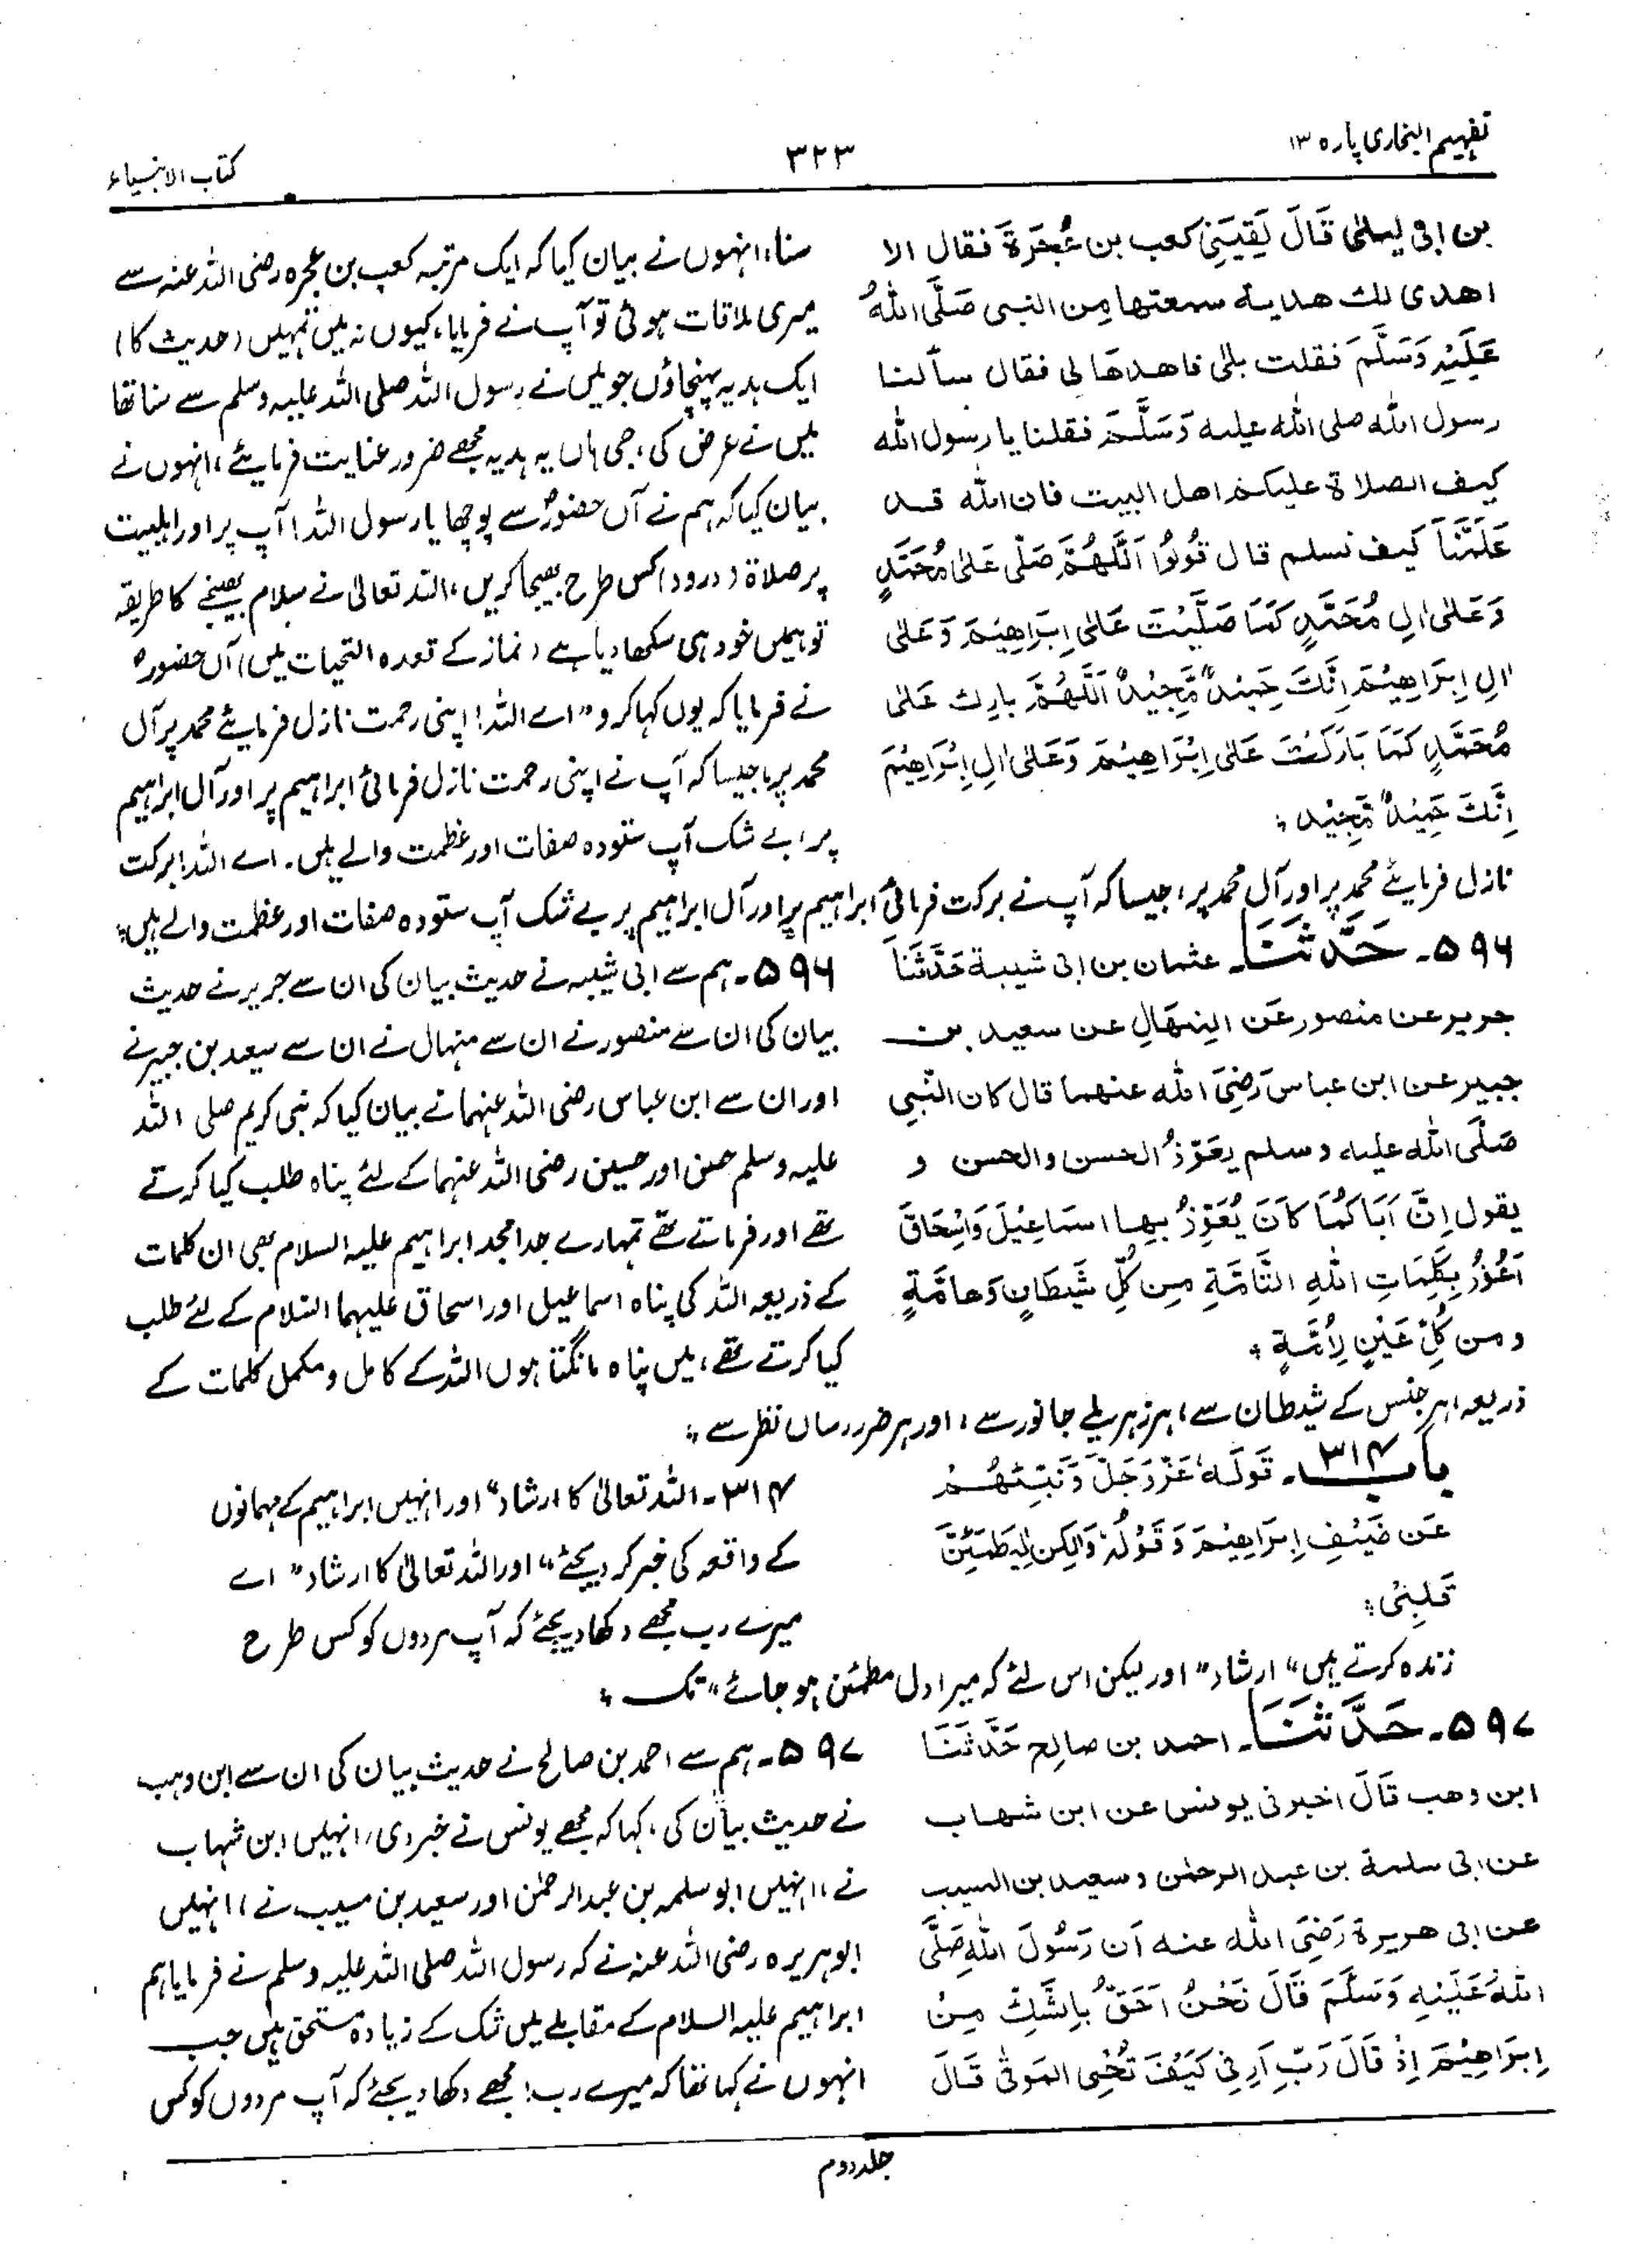 تفہیم البخاری پارہ ۱۳
۳۲۳
کتاب الانبیاء
بن ابی لیلیٰ قَالَ لَقِیَنِی کعب بن عُجْرَةَ فقال الا
اھدی لک ھدیة سمعتھا مِن النبی صَلَّی اللهُ
عَلَیْهِ وَسَلَّمَ فقلت بلیٰ فاھدھَا لی فقال سألنا
رسول الله صلی الله علیه وَسَلَّمَ فقلنا یا رسول الله
کیف الصلاة علیکم اھل البیت فان الله قد
عَلَّمَنَا کیف نسلم قال قُولُوا اَللّٰھُمَّ صَلِّی عَلیٰ مُحَمَّدٍ
وَعَلیٰ اٰلِ مُحَمَّدٍ کَمَا صَلَّیْتَ عَلیٰ اِبْرَاھِیْمَ وَعَلیٰ
اٰلِ اِبْرَاھِیْمَ اِنَّكَ حَمِیْدٌ مَّجِیْدٌ اَللّٰھُمَّ بارِك عَلیٰ
مُحَمَّدٍ کَمَا بَارَکْتَ عَلیٰ اِبْرَاھِیْمَ وَعَلیٰ اٰلِ اِبْرَاھِیْمَ
اِنَّكَ حَمِیْدٌ مَّجِیْد ؛
سنا، انہوں نے بیان کیا کہ ایک مرتبہ کعب بن عجرہ رضی اللہ عنہ سے
میری ملاقات ہوئی تو آپ نے فرمایا، کیوں نہ میں تمہیں (حدیث کا)
ایک ہدیہ پہنچاؤں جو میں نے رسول اللہ صلی اللہ علیہ وسلم سے سنا تھا
میں نے عرض کی، جی ہاں یہ ہدیہ مجھے ضرور عنایت فرمایئے، انہوں نے
بیان کیا کہ ہم نے آں حضورؐ سے پوچھا یا رسول اللہ! آپ پر اور اہلبیت
پر صلاۃ (درود) کس طرح بھیجا کریں، اللہ تعالیٰ نے سلام بھیجنے کا طریقہ
تو ہمیں خود ہی سکھا دیا ہے (نماز کے قعدہ التحیات میں) آں حضورؐ
نے فرمایا کہ یوں کہا کرو "اے اللہ! اپنی رحمت نازل فرمایئے محمد پر آل
محمد پر، جیسا کہ آپ نے اپنی رحمت نازل فرمائی ابراہیم پر اور آل ابراہیم
پر، بے شک آپ ستودہ صفات اور عظمت والے ہیں۔ اے اللہ! برکت
نازل فرمایئے محمد پر اور آل محمد پر، جیسا کہ آپ نے برکت فرمائی ابراہیم پر اور آل ابراہیم پر بے شک آپ ستودہ صفات اور عظمت والے ہیں؛
۵۹۶۔ حَدَّثَنَا۔ عثمان بن ابی شیبة حَدَّثَنَا
جریر عن منصور عَن المِنْھَالِ عن سعید بن
جبیر عن ابن عباس رَضِیَ الله عنھما قال کان النَّبِی
صَلَّی الله علیه وسلم یعَوّذُ الحسن والحسن و
یقول اِنَّ اَبَاکُمَا کَانَ یُعَوِّذُ بِھا اسمَاعِیْلَ وَاِسْحَاقَ
اَعُوْذُ بِکَلِمَاتِ اللهِ التَّامَّةِ مِن کُلِّ شَیْطَانٍ وَھامَّةٍ
و من کُلِّ عَیْنٍ لَامَّةٍ ؛
۵۹۶۔ ہم سے ابی شیبہ نے حدیث بیان کی ان سے جریر نے حدیث
بیان کی ان سے منصور نے ان سے منہال نے ان سے سعید بن جبیر نے
اور ان سے ابن عباس رضی اللہ عنہما نے بیان کیا کہ نبی کریم صلی اللہ
علیہ وسلم حسن اور حسین رضی اللہ عنہما کے لئے پناہ طلب کیا کرتے
تھے اور فرماتے تھے تمہارے جد امجد ابراہیم علیہ السلام بھی ان کلمات
کے ذریعہ اللہ کی پناہ اسماعیل اور اسحاق علیہما السلام کے لئے طلب
کیا کرتے تھے، میں پناہ مانگتا ہوں اللہ کے کامل و مکمل کلمات کے
ذریعہ، ہر جنس کے شیطان سے، ہر زہریلے جانور سے، اور ہر ضرر رساں نظر سے ؛
باب ۳۱۴۔ قَولَهُ عَزَّوَجَلَّ وَنَبِّئْھُمْ
عَن ضَیْفِ اِبْرَاھِیْمَ وَقَوْلُهُ وَلٰکِن لِیَطْمَئِنَّ
قَلبِیْ ؛
۳۱۴۔ اللہ تعالیٰ کا ارشاد "اور انہیں ابراہیم کے مہمانوں
کے واقعہ کی خبر کر دیجئے" اور اللہ تعالیٰ کا ارشاد "اے
میرے رب مجھے دکھا دیجئے کہ آپ مردوں کو کس طرح
زندہ کرتے ہیں" ارشاد "اور لیکن اس لئے کہ میرا دل مطمئن ہو جائے" تک ؛
۵۹۷۔ حَدَّثَنَا۔ احمد بن صالِح حَدَّثَنَا
ابن وھب قَالَ اخبرنی یونس عن ابن شھاب
عن ابی سلمة بن عبد الرحمٰن وسعید بن المسیب
عن ابی ھریرة رَضِیَ الله عنه اَن رَسُولَ اللهِ صَلَّی
اللهُ عَلَیْهِ وَسَلَّمَ قَالَ نَحْنُ اَحَقُّ بِالشَّكِّ مِنْ
اِبْرَاھِیْمَ اِذْ قَالَ رَبِّ اَرِنِی کَیْفَ تُحْیِ المَوتٰی قَالَ
۵۹۷۔ ہم سے احمد بن صالح نے حدیث بیان کی ان سے ابن وہب
نے حدیث بیان کی، کہا کہ مجھے یونس نے خبر دی، انہیں ابن شہاب
نے، انہیں ابوسلمہ بن عبدالرحمٰن اور سعید بن مسیب نے، انہیں
ابوہریرہ رضی اللہ عنہ نے کہ رسول اللہ صلی اللہ علیہ وسلم نے فرمایا ہم
ابراہیم علیہ السلام کے مقابلے میں شک کے زیادہ مستحق ہیں جب
انہوں نے کہا تھا کہ میرے رب! مجھے دکھا دیجئے کہ آپ مردوں کو کس
جلد دوم